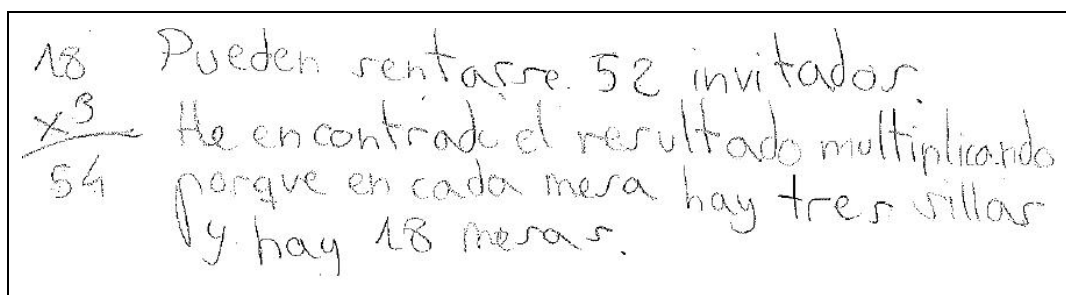 18 Pueden sentarse 52 invitados.
x 3 He encontrado el resultado multiplicando
54 porque en cada mesa hay tres sillas
y hay 18 mesas.